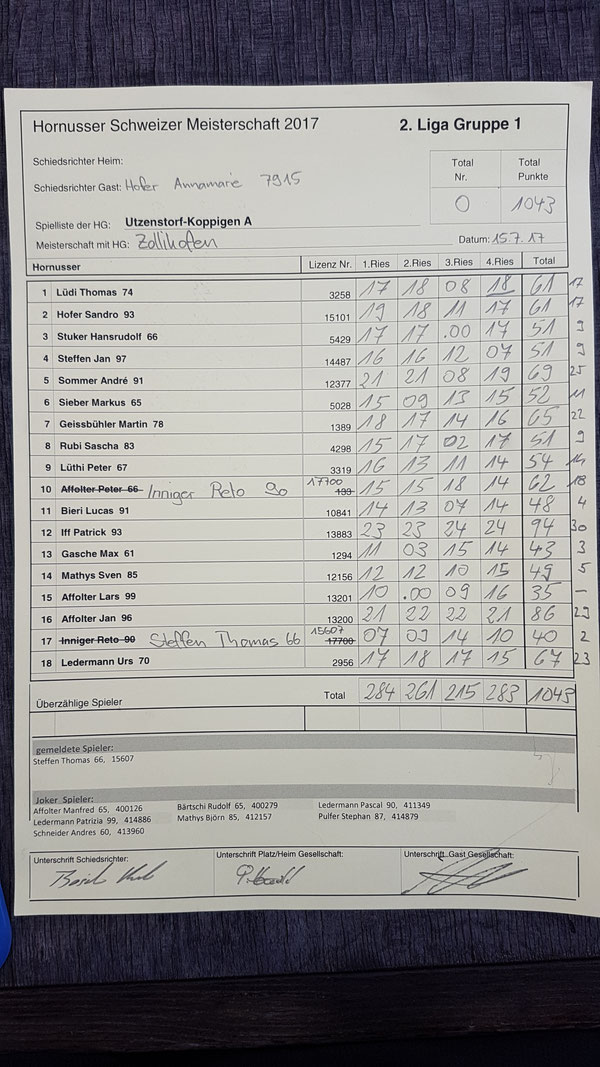 Hornusser Schweizer Meisterschaft 2017 2. Liga Gruppe 1
Schiedsrichter Heim: Total Nr. Total Punkte
Schiedsrichter Gast: Hofer Annamarie 7915 0 1043
Spielliste der HG: Utzenstorf-Koppigen A
Meisterschaft mit HG: Zollikofen Datum: 15.7.17
Hornusser Lizenz Nr. 1.Ries 2.Ries 3.Ries 4.Ries Total
1 Lüdi Thomas 74 3258 17 18 08 18 61 17
2 Hofer Sandro 93 15101 19 18 11 17 61 17
3 Stuker Hansrudolf 66 5429 17 17 .00 17 51 9
4 Steffen Jan 97 14487 16 16 12 07 51 9
5 Sommer André 91 12377 21 21 08 19 69 25
6 Sieber Markus 65 5028 15 09 13 15 52 11
7 Geissbühler Martin 78 1389 18 17 14 16 65 22
8 Rubi Sascha 83 4298 15 17 02 17 51 9
9 Lüthi Peter 67 3319 16 13 11 14 54 14
10 Affolter Peter 66 Inniger Reto 90 17700 133 15 15 18 14 62 18
11 Bieri Lucas 91 10841 14 13 07 14 48 4
12 Iff Patrick 93 13883 23 23 24 24 94 30
13 Gasche Max 61 1294 11 03 15 14 43 3
14 Mathys Sven 85 12156 12 12 10 15 49 5
15 Affolter Lars 99 13201 10 .00 09 16 35 –
16 Affolter Jan 96 13200 21 22 22 21 86 29
17 Inniger Reto 90 Steffen Thomas 66 15607 17700 07 09 14 10 40 2
18 Ledermann Urs 70 2956 17 18 17 15 67 23
Überzählige Spieler Total 284 261 215 283 1043
gemeldete Spieler:
Steffen Thomas 66, 15607
Joker Spieler:
Affolter Manfred 65, 400126 Bärtschi Rudolf 65, 400279 Ledermann Pascal 90, 411349
Ledermann Patrizia 99, 414886 Mathys Björn 85, 412157 Pulfer Stephan 87, 414879
Schneider Andres 60, 413960
Unterschrift Schiedsrichter: Unterschrift Platz/Heim Gesellschaft: Unterschrift Gast Gesellschaft: